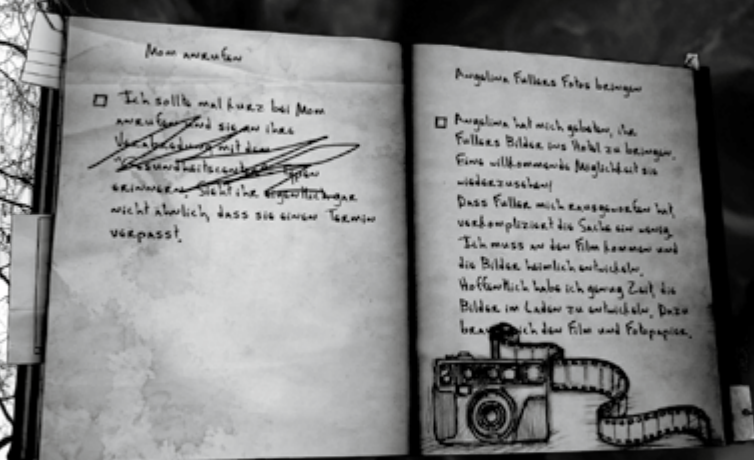 Mom anrufen
Ich sollte mal kurz bei Mom
anrufen und sie an ihre
Verabredung mit dem
Gesundheitscenter
erinnern. Sieht ihr eigentlich gar
nicht ähnlich, dass sie einen Termin
verpasst.
Angelina Fullers Fotos bringen
Angelina hat mich gebeten, ihr
Fullers Bilder ins Hotel zu bringen.
Eine willkommende Möglichkeit sie
wiederzusehen!
Dass Fuller mich rausgeworfen hat,
verkompliziert die Sache ein wenig.
Ich muss an den Film kommen und
die Bilder heimlich entwickeln.
Hoffentlich habe ich genug Zeit, die
Bilder im Laden zu entwickeln. Dazu
ich den Film und Fotopapier.